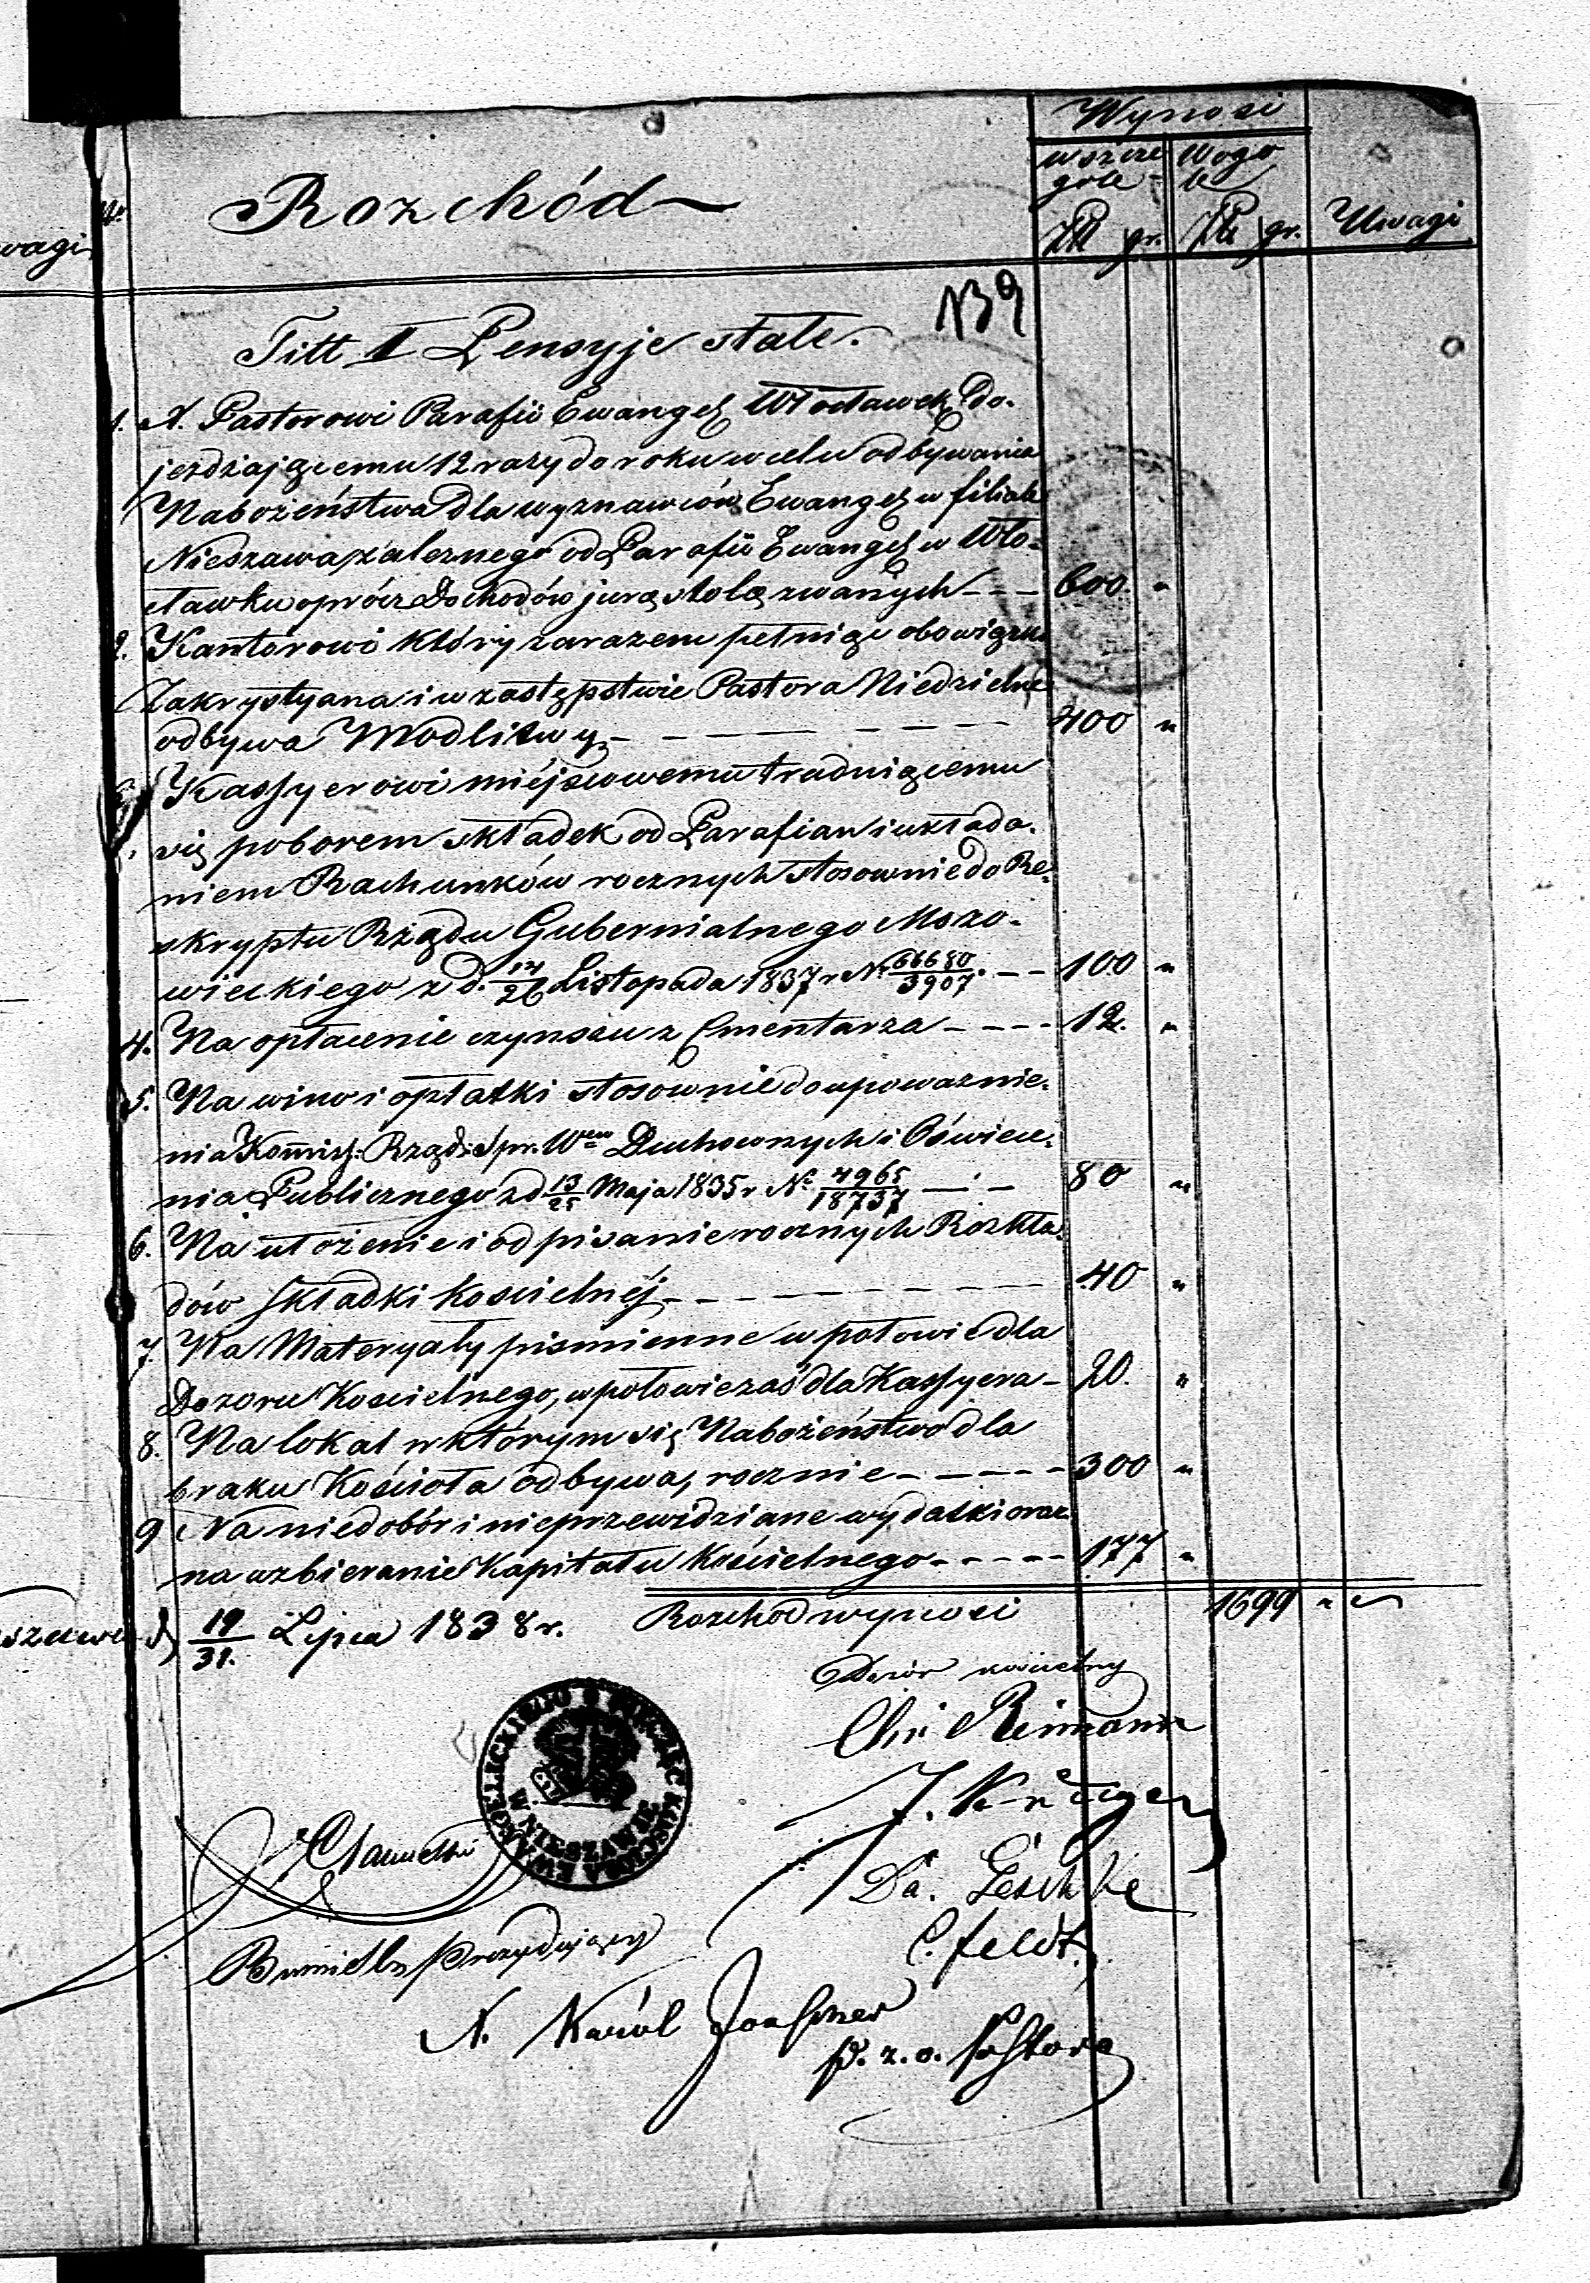 Wynosi
wszcze Wogo
góle le
No Rozchód Zł gr. Zł gr. Uwagi
wagi
139
Titt I Pensyje stałe.
1. X. Pastorowi Parafii Ewangel Włocławek Do-
jeżdżającemu 12 razy do roku w celu odbywania
Nabożeństwa dla wyznawców Ewangel w filiale
Nieszawa zależnego od Parafii Ewangel w Wło-
cławku oprócz Dochodów jura stolæ zwanych - - - 600. "
2. Kantorowi który zarazem pełniąc obowiązki
Zakrystyana i w zastępstwie Pastora Niedzielne
odbywa Modlitwy - - - - - - 400 "
3. Kassyerowi miéjscowemu trudniącemu
się poborem składek od Parafian i układa-
niem Rachunków rocznych stosownie do Re-
skryptu Rządu Gubernialnego Mazo-
wieckiego z d. 14/26 Listopada 1837 r No 66680/3907. - - 100 "
4. Na opłacenie czynszu z Cmentarza - - - - 12. "
5. Na wino i opłatki stosownie do upoważnie-
nia Kommiss: Rząd: Spr. Wewn Duchownych i Oświece-
nia Publicznego z d 13/25 Maja 1835 r No 4965/18737 - - - 80 "
6. Na ułożenie i odpisanie rocznych Rozkła-
dów składki kościelnéj - - - - - - - - 40 "
7. Na Materyały piśmienne w połowie dla
Dozoru Kościelnego, w połowie zaś dla Kassyera - 20. "
8. Na lokal w którym się Nabożeństwo dla
braku Kościoła odbywa, rocznie - - - - - 300 "
9 Na niedobór i nieprzewidziane wydatki oraz
na uzbieranie Kapitału Kościelnego - - - - - 177 "
Rozchod wynosi 1699 " "
d 19/31. Lipca 1838 r.
Dozór kościelny
Chri Reimann
J. Krüger
Da. Geschke
C. Feldt.
Burmistrz Prezydujący
N. Karól
p. z. o. Pastora
PIECZĘC KOSCIOŁA EWANGELICKIEGO
W NIESZAWIE